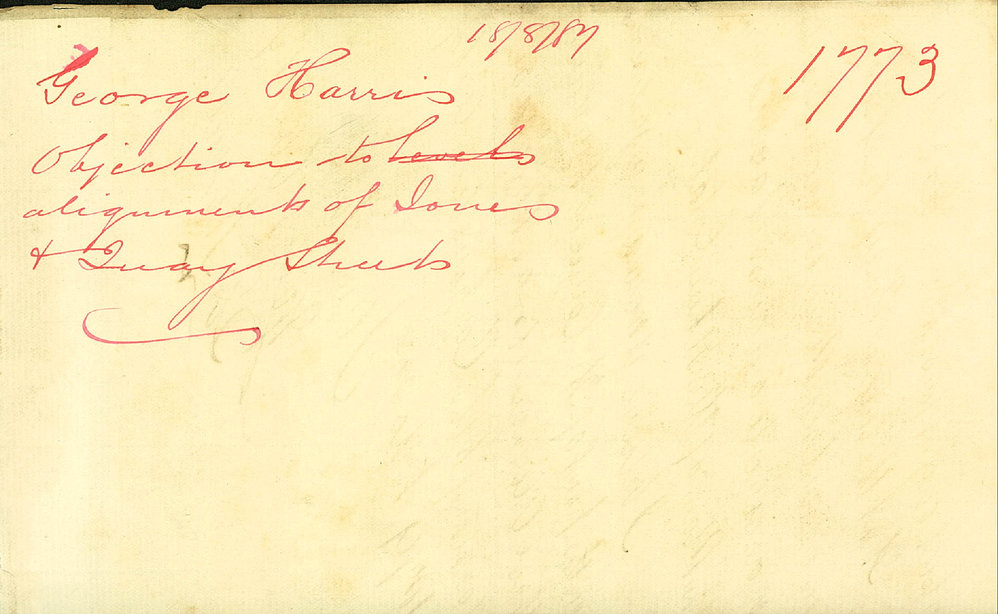 18/8/87
1773
George Harris
Objection to levels
alignments of Jones
& Quay Streets